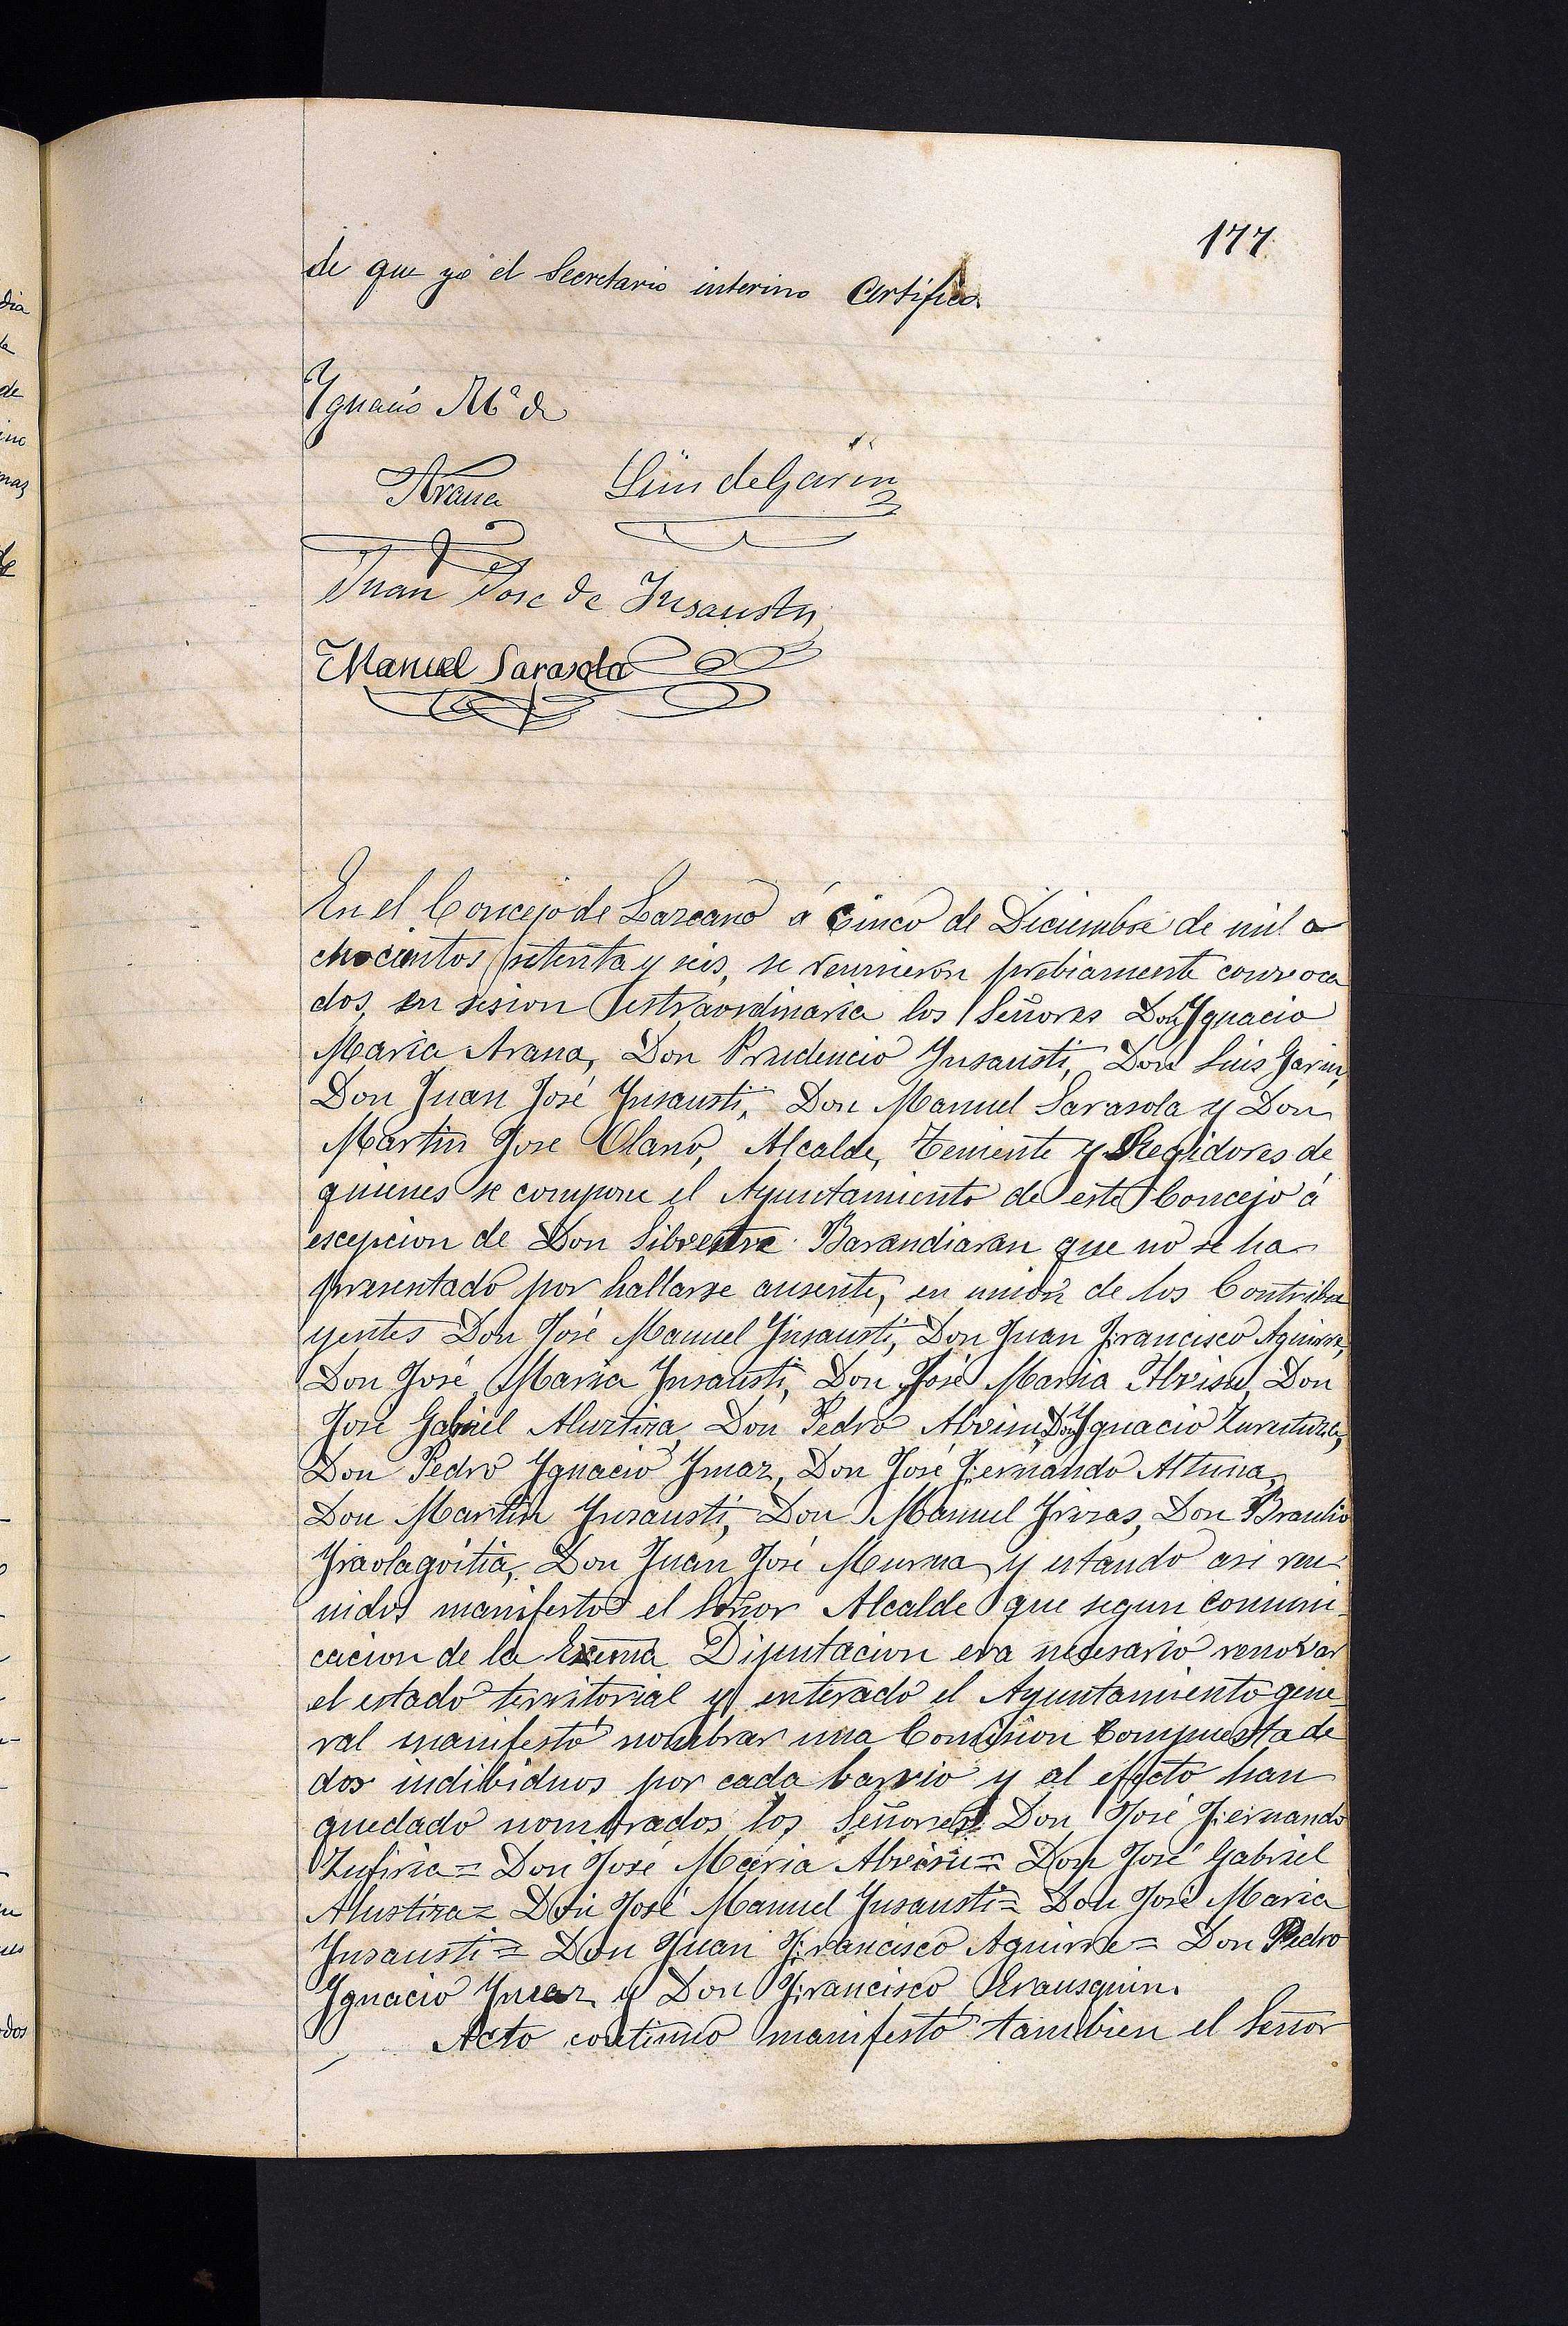 177
de que yo el Secretario interino Certifico.
Ygnacio Mª de
Arana Luis de Garin
Juan Jose de Ynsausti
Manuel Sarasola
En el Concejo de Lazcano á cinco de Diciembre de mil o
chocientos setenta y seis, se reunieron prebiamente convoca
dos, en sesion estraordinaria los Señores Don Ygnacio
Maria Arana, Don Prudencio Ynsausti, Don Luis Garin,
Don Juan José Ynsausti, Don Manuel Sarasola y Don
Martin Jose Olano, Alcalde, Teniente y Regidores de
quienes se compone el Ayuntamiento de este Concejo á
escepcion de Don Silvestre Barandiaran que no se ha
presentado por hallarse ausente, en union de los Contribu
yentes Don José Manuel Ynsausti, Don Juan Francisco Aguirre,
Don José Maria Ynsausti, Don José Maria Albisu, Don
José Gabriel Alustiza, Don Pedro Albisu, Don Ygnacio
Don Pedro Ygnacio Ymaz, Don José Fernando Altuna,
Don Martin Ynsausti, Don Manuel Yrizas, Don Braulio
Yraolagoitia, Don Juan José Murua y estando asi reu-
nidos manifestó el Señor Alcalde que segun comuni-
cacion de la Exema Diputacion era nesesario renovar
el estado territorial y enterado el Ayuntamiento gene-
ral manifestó nombrar una Comision Compuesta de
dos indibiduos por cada barrio y al efecto han
quedado nombrados los Señores Don José Fernando
Zufiria = Don José Maria Albisu = Don José Gabriel
Alustiza = Don José Manuel Ynsausti = Don José Maria
Ynsausti = Don Juan Francisco Aguirre = Don Pedro
Ygnacio Ymaz y Don Francisco Erausquin.
Acto continuo manifestó tambien el Señor